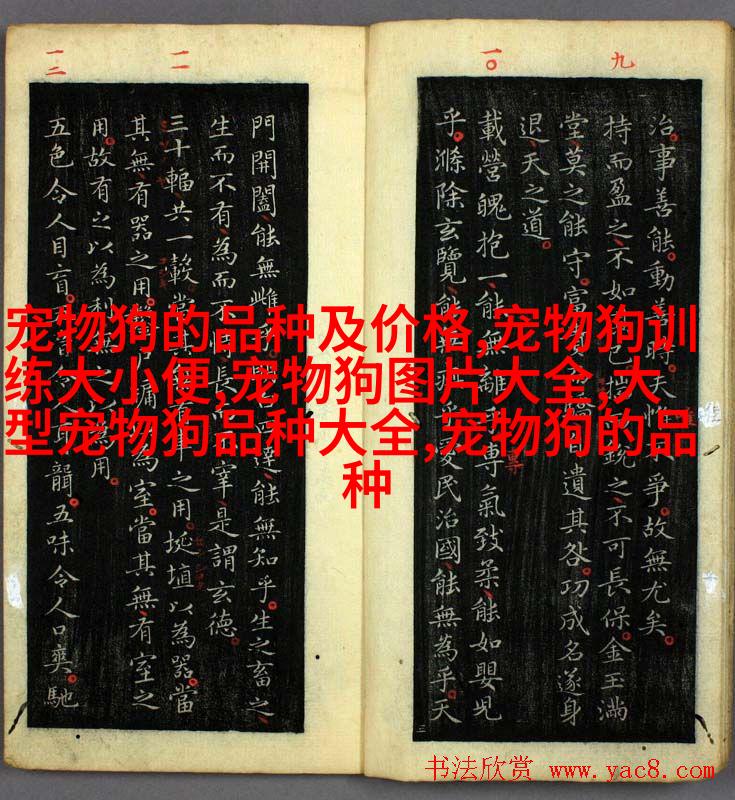 九
一〇
治事善能動善時夫惟爭故無尤矣
持而盈之不如已揣銳之不可長保金玉滿
堂莫之能守富自遺其咎功成名遂身
退天之道
載營魄抱一能無離專氣致柔能如嬰兒
乎滌除玄覽能無疵乎愛民治國能無為乎天
一一
一二
門開闔能無雌達能無知乎生之畜之
生而不有為而不長而宰是謂玄德
三十輻共一轂當其無之用埏埴以為器當
其無有器之用牖為室當其無有室之
用故有之以為利無之用
五色令人目盲音耳聾五味令人口爽馳
宠物狗的品种及价格,宠物狗训
练大小便,宠物狗图片大全,大
型宠物狗品种大全,宠物狗的品
种
书法欣赏 www.yac8.com